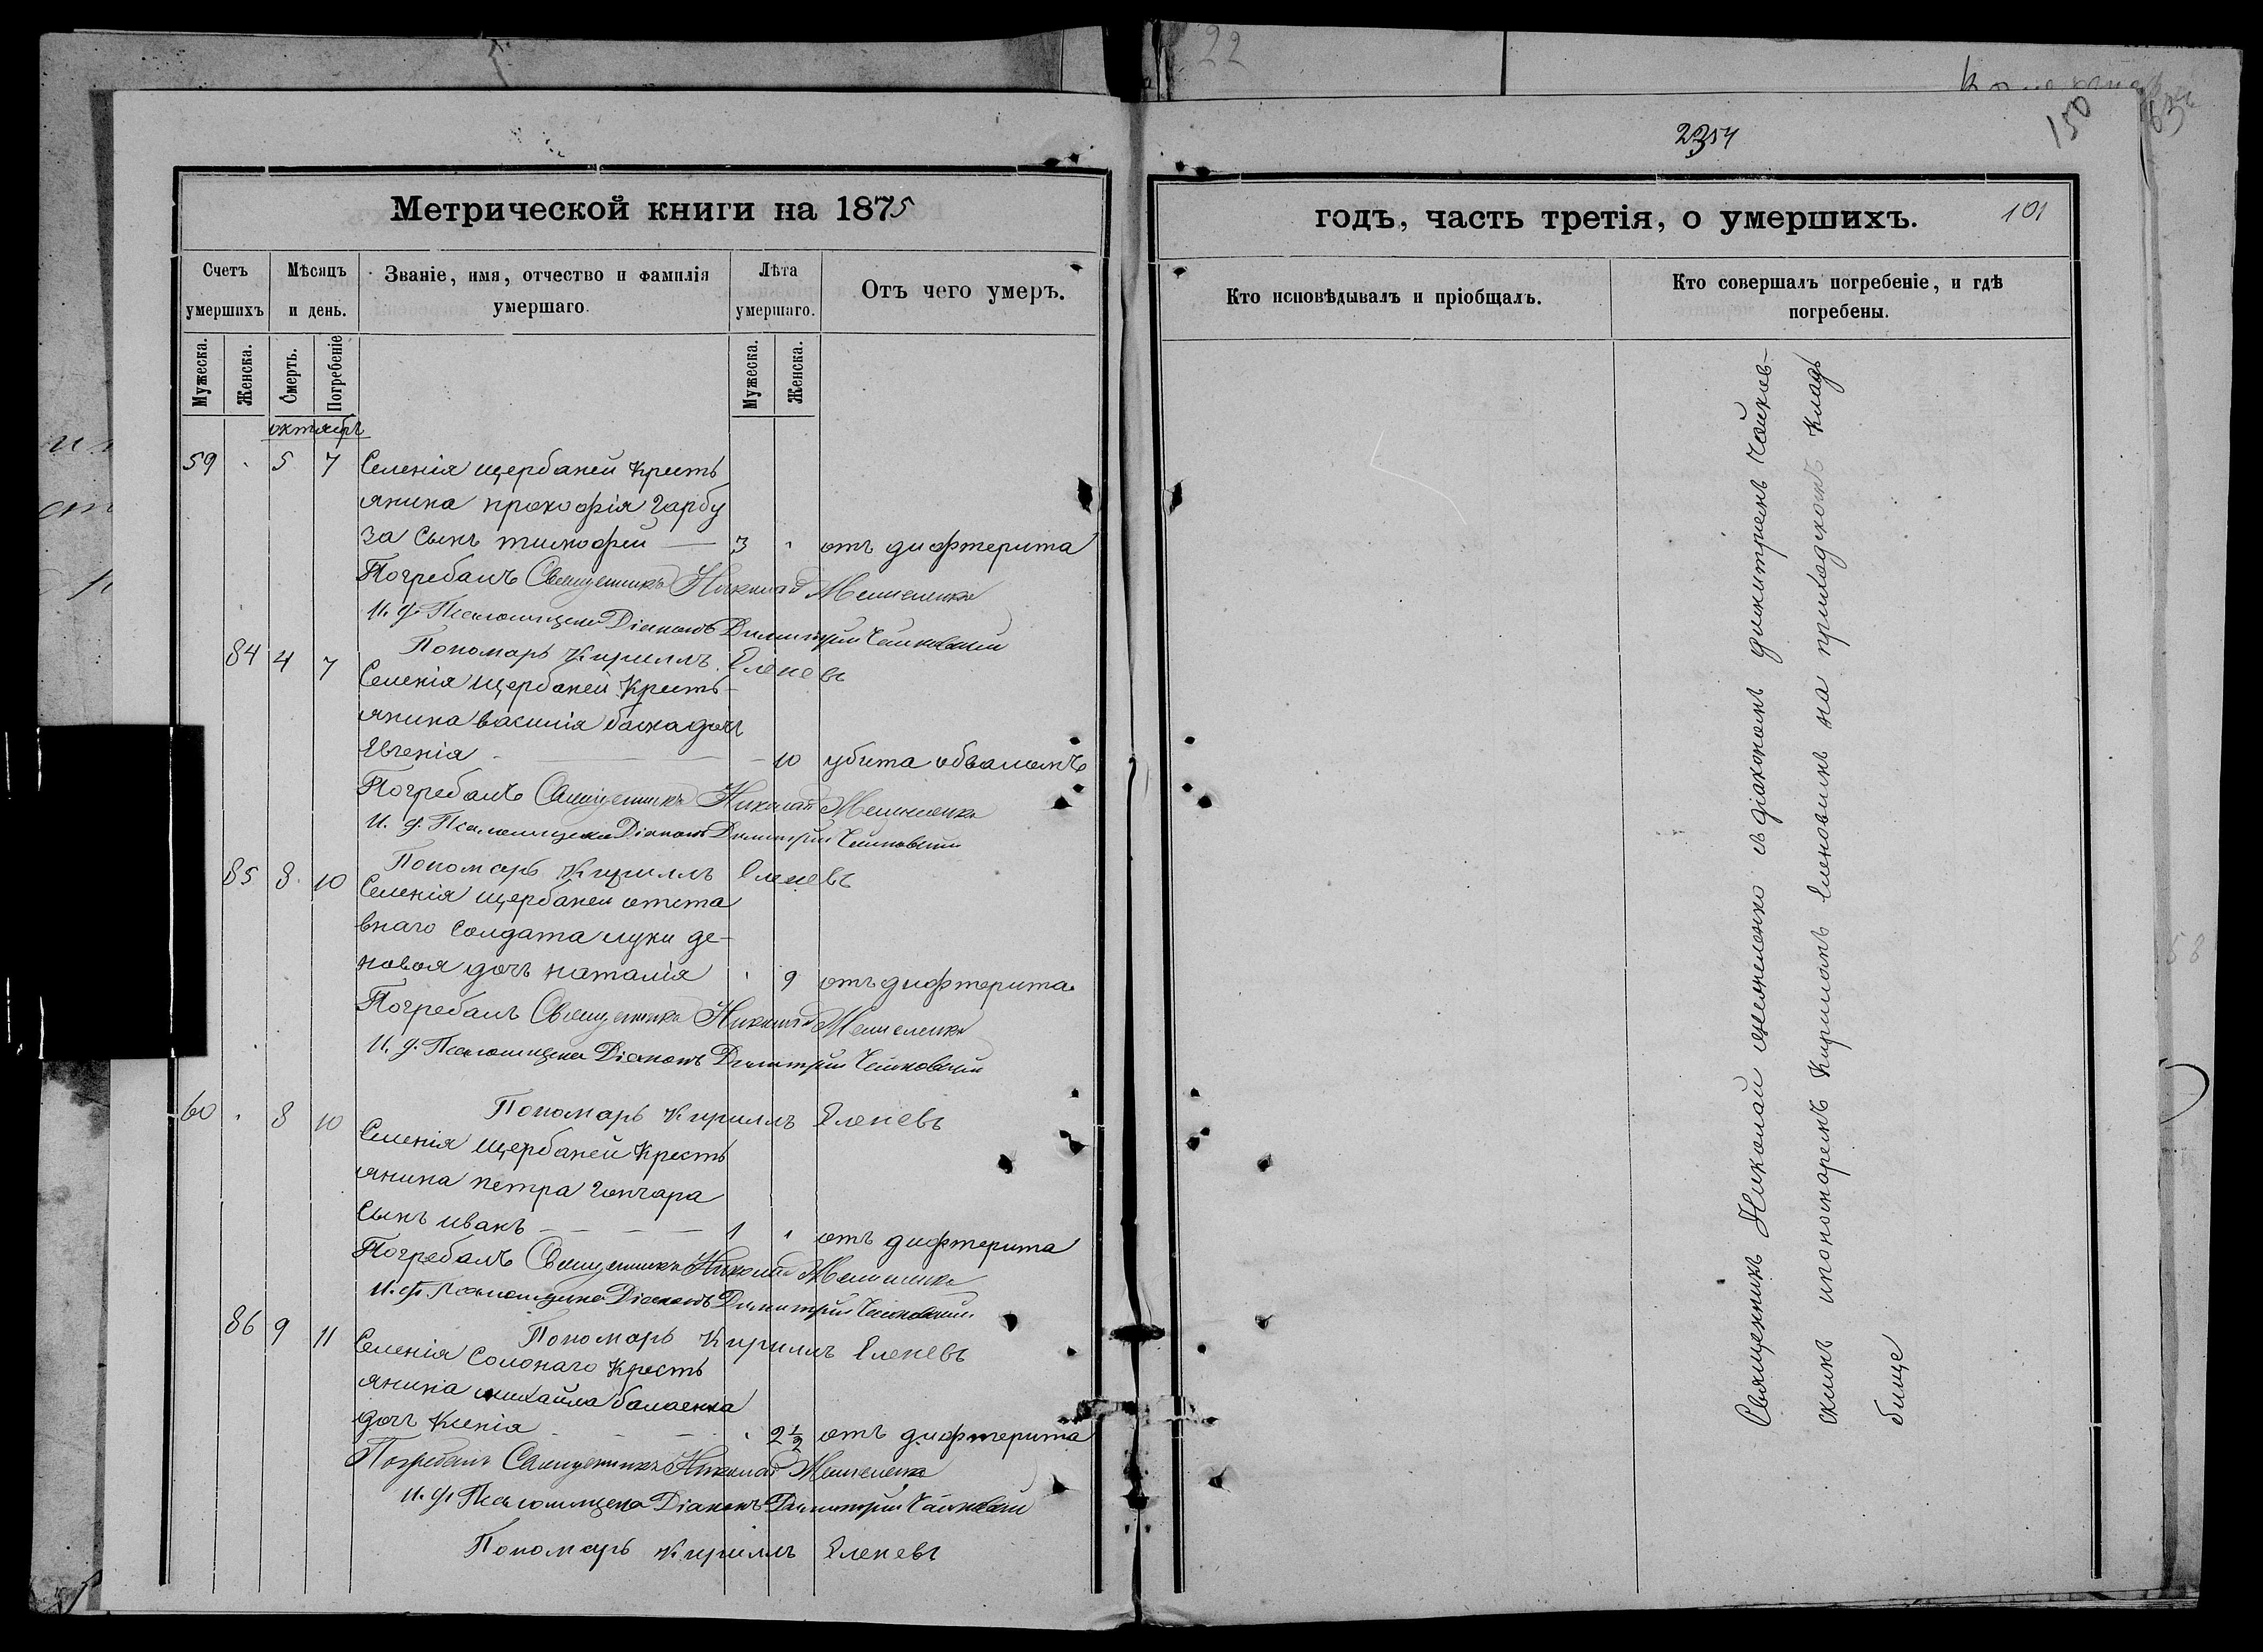 22
2354
150
63
Метрической книги на 1875
годъ, часть третія, о умершихъ.
101
Счетъ умершихъ
Мѣсяцъ и день.
Званіе, имя, отчество и фамилія умершаго.
Лѣта умершаго.
Отъ чего умеръ.
Кто исповѣдывалъ и пріобщалъ.
Кто совершалъ погребеніе, и гдѣ погребены.
Мужеска.
Женска.
Смерть.
Погребеніе
Мужеска.
Женска.
октябрь
59 5 7 Селенія щербаней Кресть
янина прокофія гарбу
за Сынъ тимофей — 3 отъ дифтерита
Погребалъ Священникъ Николай
И. д. Псаломщика Діаконъ Димитрій
Пономарь Кириллъ Еленевъ
84 4 7 Селенія щербаней Кресть-
янина василія дочь
Евгенія — 10 убита обваломъ
Погребалъ Священникъ Николай
И. д. Псаломщика Діаконъ Димитрій
Пономарь Кириллъ Еленевъ
85 8 10 Селенія щербаней отста
внаго Солдата луки де-
новоя дочь наталія 9 отъ дифтерита
Погребалъ Священникъ Николай
И. д. Псаломщика Діаконъ Димитрій
Пономарь Кириллъ Еленевъ
60 8 10 Селенія щербаней Кресть
янина петра гончара
Сынъ иванъ — 1 отъ дифтерита
Погребалъ Священникъ Николай
И. д. Псаломщика Діаконъ Димитрій
Пономарь Кириллъ Еленевъ
86 9 11 Селенія Солонаго Кресть
янина михайла
дочь Ксенія 2 1/2 отъ дифтерита
Погребалъ Священникъ Николай
И. д. Псаломщика Діаконъ Димитрій
Пономарь Кириллъ Еленевъ
Священникъ Николай съ діакономъ димитріемъ
скимъ ипономаремъ Кириломъ Еленовымъ на приходскомъ Клад
бище
58